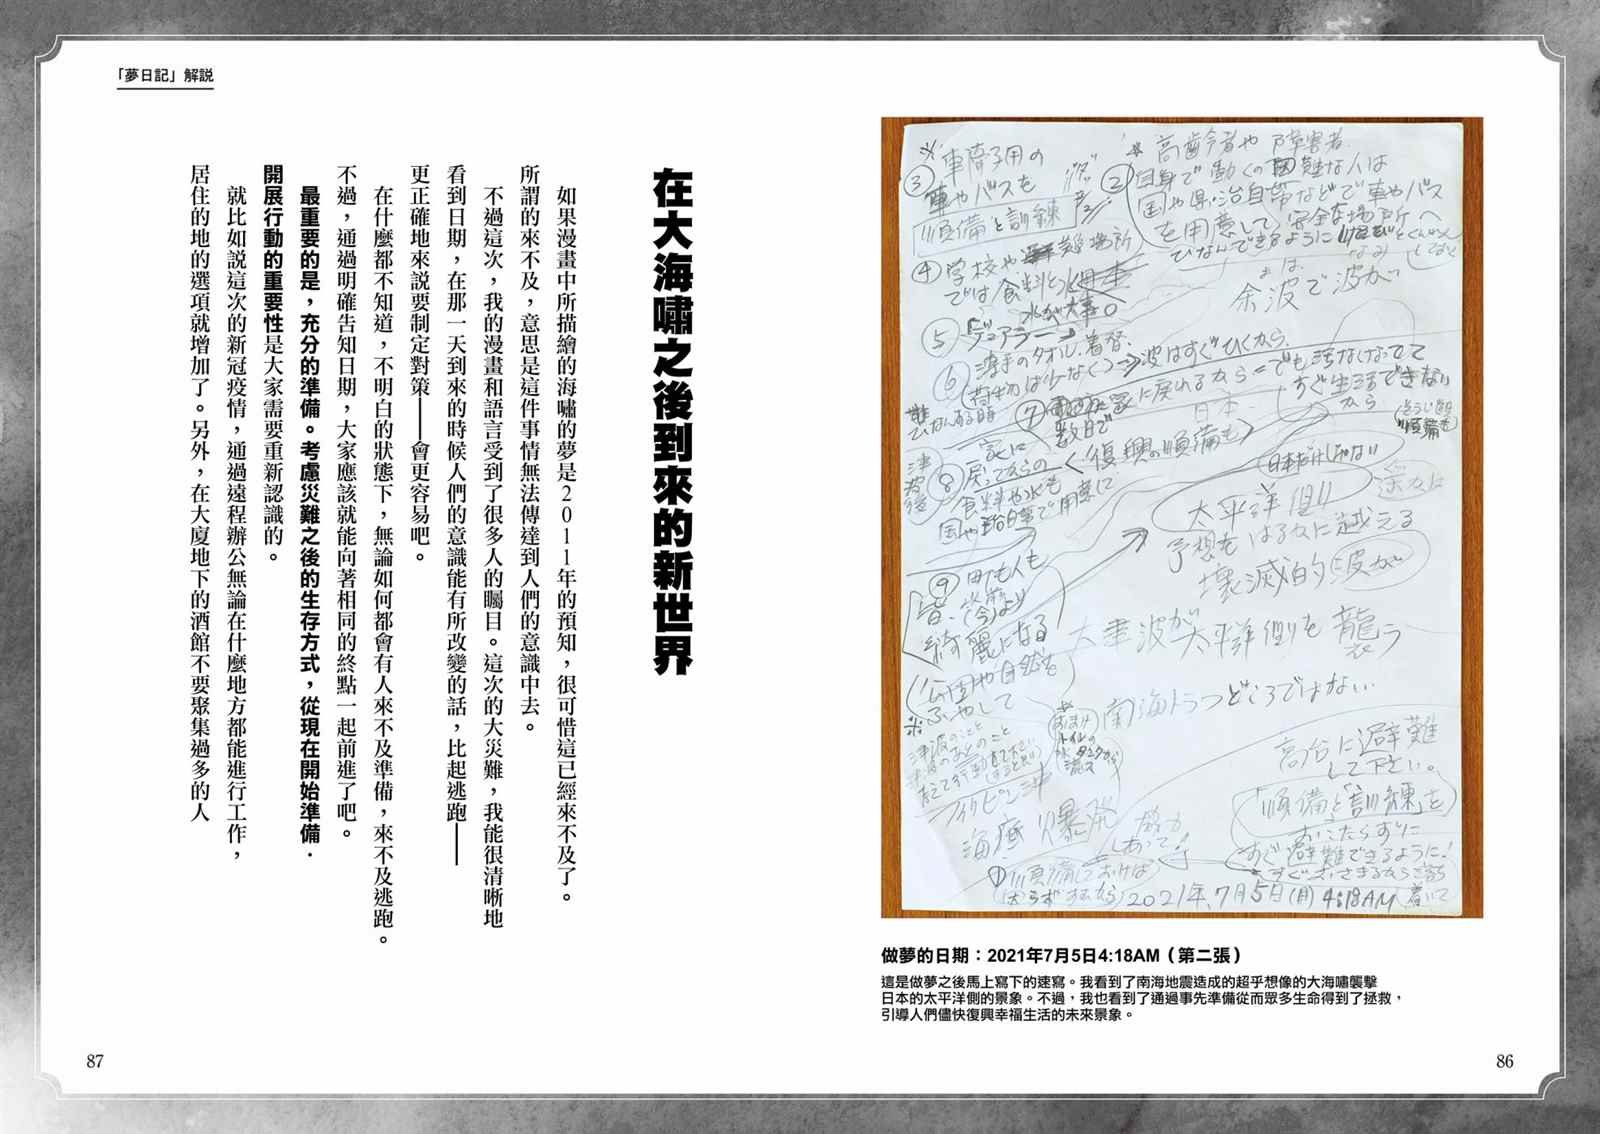 ※高齢者や障害者
②自身で動くの困難な人は
国や県・治自帯などで車やバス
を用意して、安全な場所へ
ひなんできるように
余波で波が
※車椅子用の
③車やバスを
順備と訓練
④学校や避難場所
では食料と水
水が大事。
⑤デュアラー
⑥薄手のタオル、着替、
荷物は少なく→波はすぐひくから
⑦家に戻れるから=でも活なくなってて
すぐ生活できない
から
数日で
復興の順備も
日本
日本だけじゃない
⑧家に
戻ってからの
食料や水も
国や治自帯で用意に
太平洋側
予想をはるかに越える
壊滅的波が
⑨町も人も
皆、
綺麗になる
公園や自然を
ふやして
大津波が太平洋側を襲う
南海トラつどころではない
高台に避難
して下さい。
「順備と「訓練」を
おこたらずに
すぐ避難できるように!
フィリピン沖
海底爆発
①順備しておけば
2021年、7月5日(月)4:18AM
做夢的日期：2021年7月5日4:18AM（第二張）
這是做夢之後馬上寫下的速寫。我看到了南海地震造成的超乎想像的大海嘯襲擊
日本的太平洋側的景象。不過，我也看到了通過事先準備從而眾多生命得到了拯救，
引導人們儘快復興幸福生活的未來景象。
86
「夢日記」解説
在大海嘯之後到來的新世界
如果漫畫中所描繪的海嘯的夢是2011年的預知，很可惜這已經來不及了。
所謂的來不及，意思是這件事情無法傳達到人們的意識中去。
不過這次，我的漫畫和語言受到了很多人的矚目。這次的大災難，我能很清晰地
看到日期，在那一天到來的時候人們的意識能有所改變的話，比起逃跑——
更正確地來說要制定對策——會更容易吧。
在什麼都不知道，不明白的狀態下，無論如何都會有人來不及準備，來不及逃跑。
不過，通過明確告知日期，大家應該就能向著相同的終點一起前進了吧。
最重要的是，充分的準備。考慮災難之後的生存方式，從現在開始準備．
開展行動的重要性是大家需要重新認識的。
就比如說這次的新冠疫情，通過遠程辦公無論在什麼地方都能進行工作，
居住的地的選項就增加了。另外，在大廈地下的酒館不要聚集過多的人
87